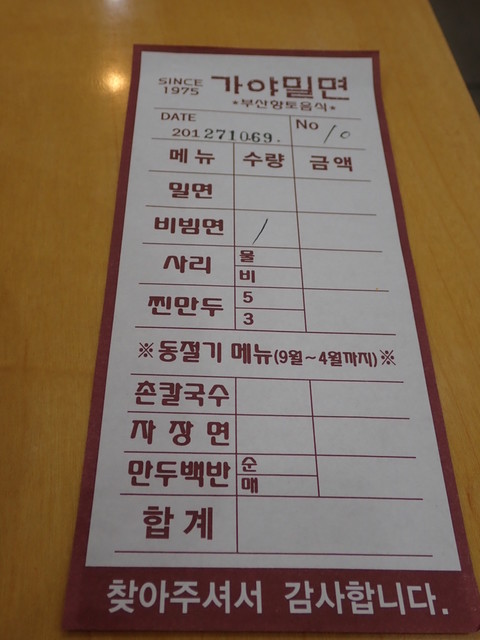 SINCE 1975 가야밀면
•부산향토음식•
DATE No 10
201271069.
메뉴 수량 금액
밀면
비빔면 /
사리 물
비
찐만두 5
3
※동절기 메뉴(9월~4월까지)※
촌칼국수
자장면
만두백반 순
매
합계
찾아주셔서 감사합니다.